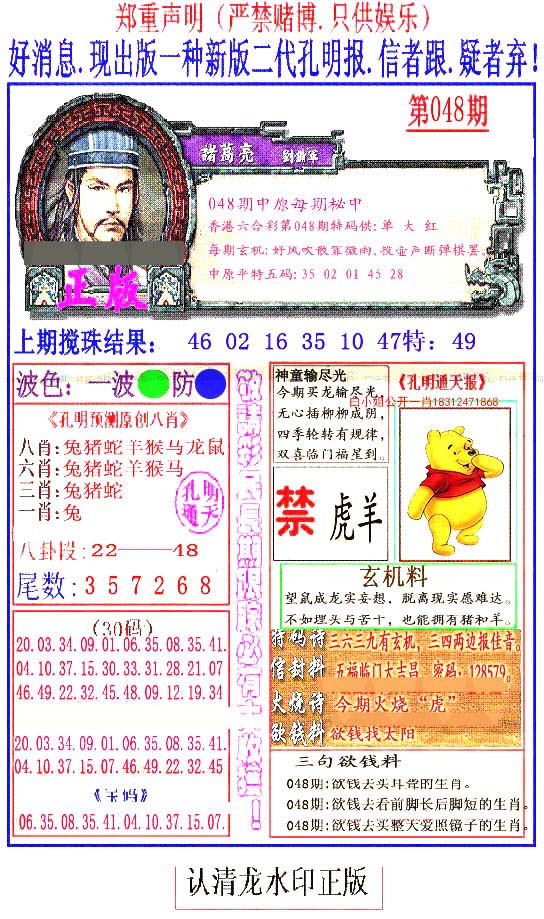 郑重声明（严禁赌博.只供娱乐）
好消息.现出版一种新版二代孔明报.信者跟.疑者弃!
第048期
諸葛亮 劉備軍
048期中原每期秘中
香港六合彩第048期特码供: 单 大 红
每期玄机: 好风吹散霏微雨,投壶声断弹棋罢.
中原平特五码: 35 02 01 45 28
正版
上期搅珠结果: 46 02 16 35 10 47特: 49
波色: 一波 防
《孔明预测原创八肖》
八肖: 兔猪蛇羊猴马龙鼠
六肖: 兔猪蛇羊猴马
三肖: 兔猪蛇
一肖: 兔
孔明
通天
八卦段: 22——48
尾数: 3 5 7 2 6 8
(30码)
20.03.34.09.01.06.35.08.35.41.
04.10.37.15.30.33.31.28.21.07
46.49.22.32.45.48.09.12.19.34
20.03.34.09.01.06.35.08.35.41.
04.10.37.15.07.46.49.22.32.45
06.35.08.35.41.04.10.37.15.07.
神童输尽光
今期买龙输尽光,
无心插柳柳成阴,
四季轮转有规律,
双喜临门福星到。
《孔明通天报》
白小姐公开一肖18312471868
禁 虎羊
玄机料
望鼠成龙实妄想, 脱离现实愿难达。
不如埋头与苦干, 也能拥有猪和羊。
特码诗 三六三九有玄机, 三四两边报佳音。
信封料 五福临门大吉昌, 密码: 128579。
火烧诗 今期火烧“虎”
欲钱料 欲钱找太阳
三句欲钱料
048期:欲钱去买耳聋的生肖。
048期:欲钱去看前脚长后脚短的生肖。
048期:欲钱去买整天爱照镜子的生肖。
认清龙水印正版